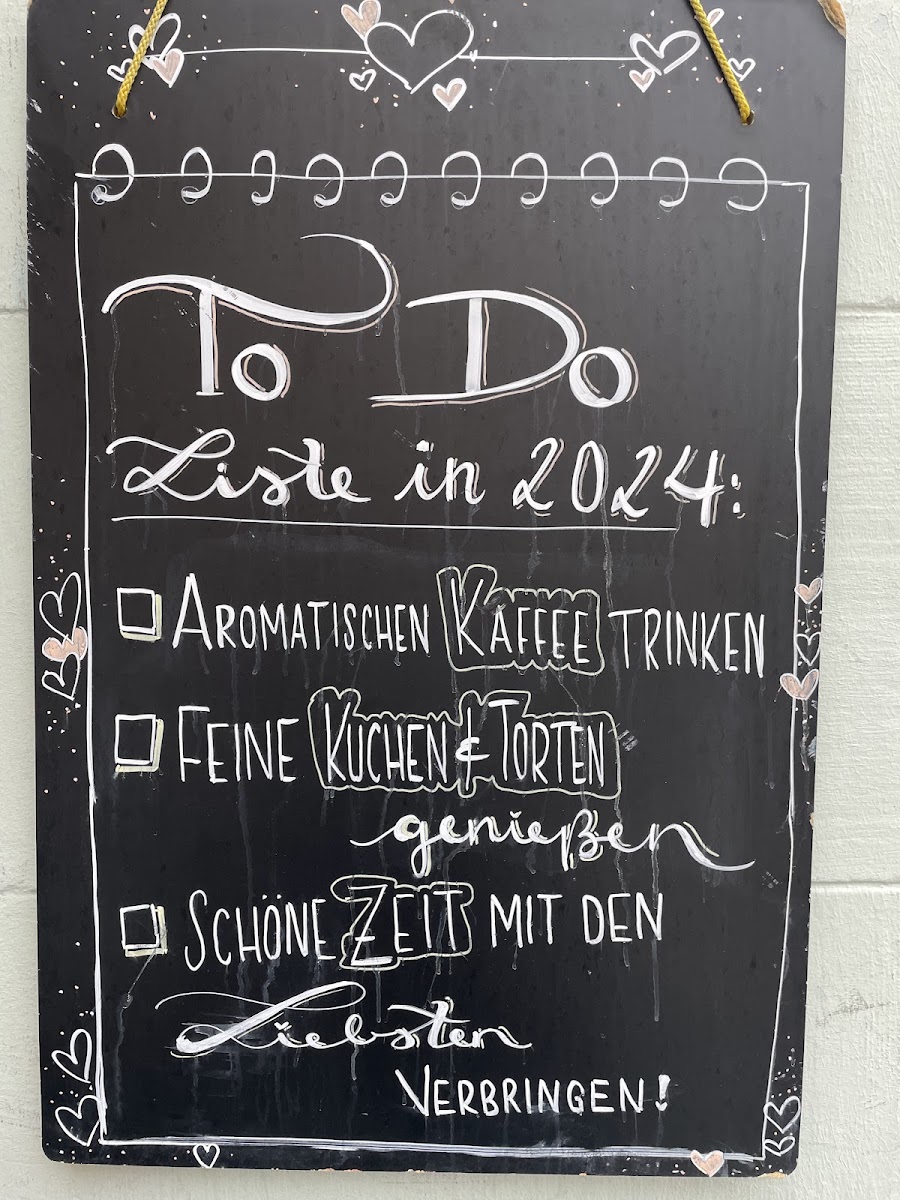 To Do
Liste in 2024:
AROMATISCHEN KAFFEE TRINKEN
FEINE KUCHEN & TORTEN
genießen
SCHÖNE ZEIT MIT DEN
Liebsten
VERBRINGEN!